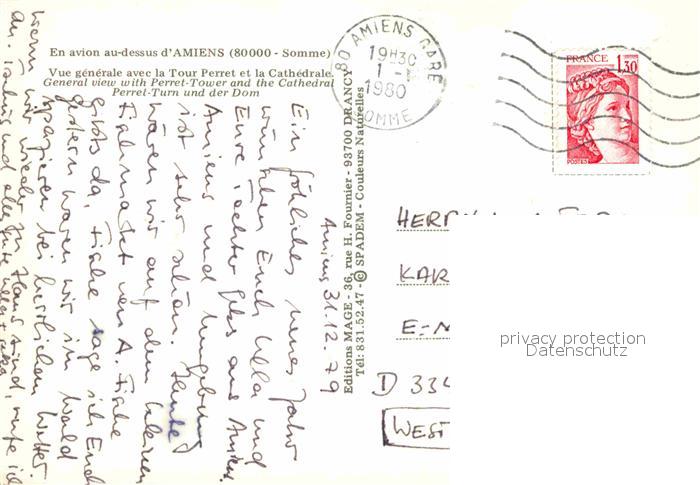 En avion au-dessus d'AMIENS (80000 - Somme)
Vue générale avec la Tour Perret et la Cathédrale.
General view with Perret-Tower and the Cathedral
Perret-Turn und der Dom
80 AMIENS GARE
19H30
1 -
1980
SOMME
FRANCE
1,30
POSTES
Editions MAGE - 36, rue H. Fournier - 93700 DRANCY
Tél: 831.52.47 - © SPADEM - Couleurs Naturelles
Amiens, 31.12.79
Ein fröhliches neues Jahr
wünschen Euch Ulla und
Eure Tochter Gabs aus Amiens.
Amiens und Umgebung
ist sehr schön. Heute
waren wir auf dem kleinen
Fischmarkt von A. Fische
gibts da, Fische sage ich Euch
gestern waren wir im Wald
spazieren bei herrlichem Wetter.
Wenn wir wieder zu Hause sind, rufe ich
an. Tschüs und alles Gute
HERR
KAR
E-N
D 334
WEST
privacy protection
Datenschutz